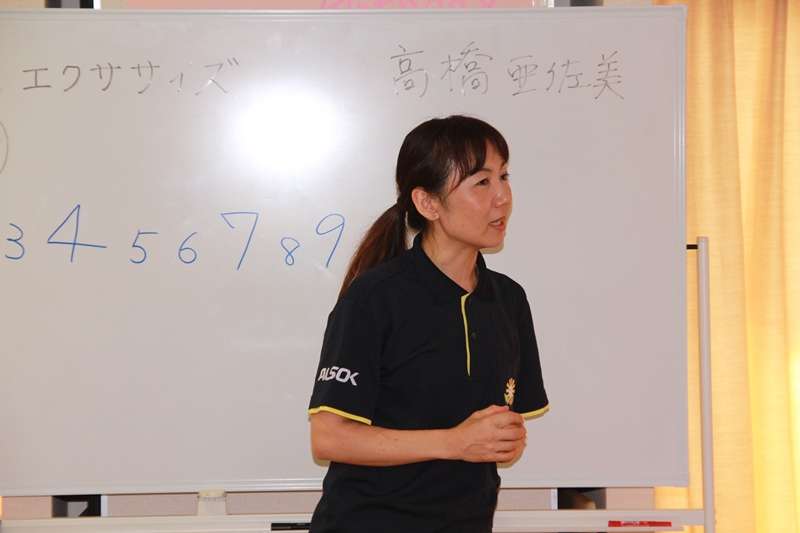 エクササイズ 高橋 亜佐美
3 4 5 6 7 8 9
ALSOK